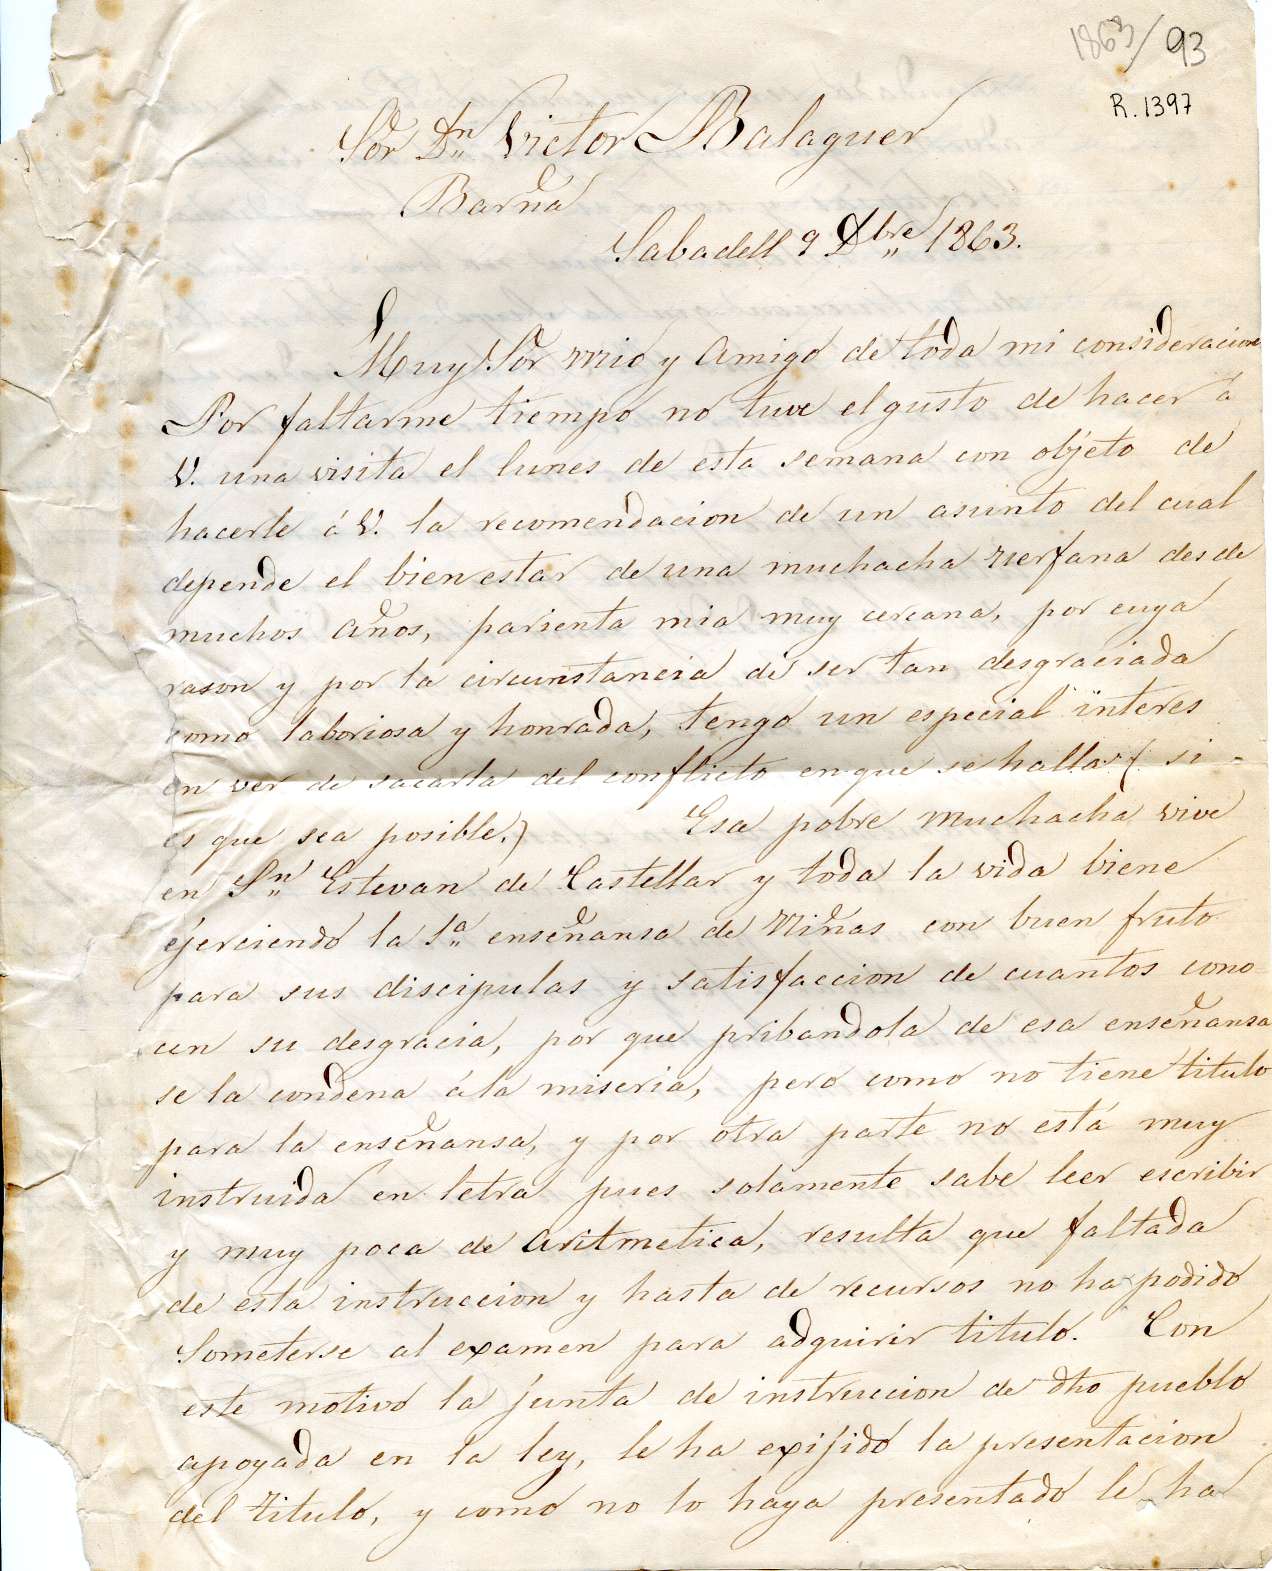 1863/93
R. 1397
Sor Dn Victor Balaguer
Barna
Sabadell 9 Dbre 1863.
Muy Sor mio y amigo de toda mi consideracion
Por faltarme tiempo no tuve el gusto de hacer á
V. una visita el lunes de esta semana con objeto de
hacerle á V. la recomendacion de un asunto del cual
depende el bienestar de una muchacha uerfana desde
muchos años, parienta mia muy cercana, por cuya
rason y por la circunstancia de ser tan desgraciada
como laboriosa y honrada, tengo un especial interes
en ver de sacarla del conflicto en que se halla (si
es que sea posible.) Esa pobre muchacha vive
en Sn Estevan de Castellar y toda la vida biene
ejerciendo la 1a enseñansa de Niñas con buen fruto
para sus discipulas y satisfaccion de cuantos cono-
cen su desgracia, por que pribandola de esa enseñansa
se la condena á la miseria, pero como no tiene titulo
para la enseñansa, y por otra parte no está muy
instruida en letra pues solamente sabe leer escribir
y muy poca de aritmetica, resulta que faltada
de esta instruccion y hasta de recursos no ha podido
someterse al examen para adquirir titulo. Con
este motivo la junta de instruccion de dho pueblo
apoyada en la ley, le ha exijido la presentacion
del titulo, y como no lo haya presentado le ha